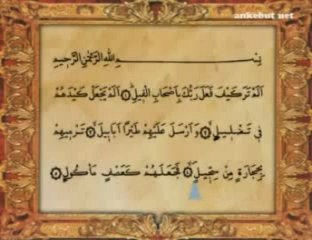 ankebut net
بِسْمِ اللهِ الرَّحْمٰنِ الرَّحِيمِ
اَلَمْ تَرَ كَيْفَ فَعَلَ رَبُّكَ بِاَصْحَابِ الْفٖيلِ ۞ اَلَمْ يَجْعَلْ كَيْدَهُمْ
فٖى تَضْلٖيلٍ ۞ وَاَرْسَلَ عَلَيْهِمْ طَيْرًا اَبَابٖيلَ ۞ تَرْمٖيهِمْ
بِحِجَارَةٍ مِنْ سِجّٖيلٍ ۞ فَجَعَلَهُمْ كَعَصْفٍ مَأْكُولٍ ۞